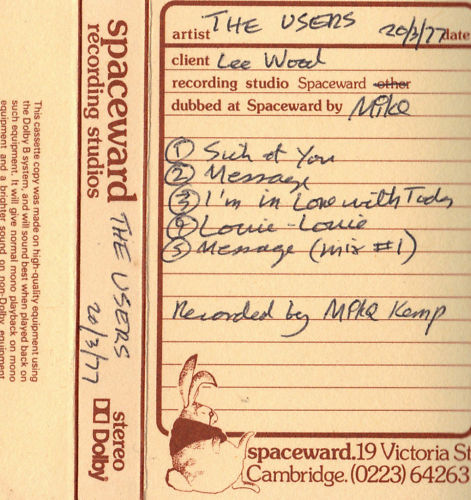 This cassette copy was made on high-quality equipment using
the Dolby B system, and will sound best when played back on
such equipment. It will give normal mono playback on mono
equipment and a brighter sound on non-Dolby equipment
spaceward
recording studios
THE USERS
20/3/77
stereo
Dolby
artist THE USERS 20/3/77 date
client Lee Wood
recording studio Spaceward other
dubbed at Spaceward by Mike
① Sick of You
② Message
③ I'm in Love with Today
④ Louie-Louie
⑤ Message (mix #1)
Recorded by Mike Kemp
spaceward. 19 Victoria St
Cambridge. (0223) 64263